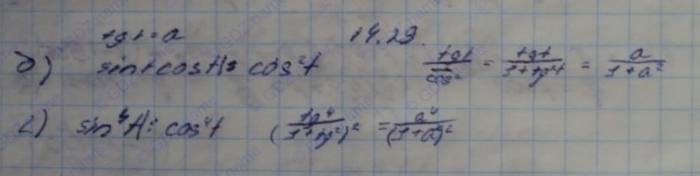 tg t = a 14.29
б) sin t cos t |: cos²t tg t / 1/cos² = tg t / 1+tg²t = a / 1+a²
г) sin⁴t |: cos⁴t tg⁴ / (1+tg²)² = a⁴ / (1+a²)²